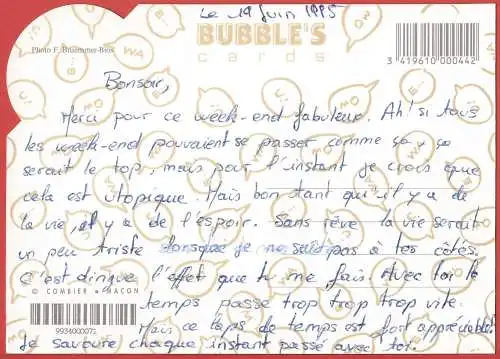 Le 19 Juin 1995
BUBBLE'S
cards
Photo F. Brutemmer-Bios
3 419610 000442
Bonsoir,
Merci pour ce week-end fabuleux. Ah! si tous
les week-end pouvaient se passer comme ça, ça
serait le top, mais pour l'instant je crois que
cela est utopique. Mais bon tant qu'il y a de
la vie, il y a de l'espoir. Sans rêve la vie serait
un peu triste lorsque je ne suis pas à tes côtés.
C'est dingue l'effet que tu me fais. Avec toi le
© COMBIER • MACON
temps passe trop trop trop vite.
9934000071
Mais ce laps de temps est fort appréciable
Je savoure chaque instant passé avec toi.